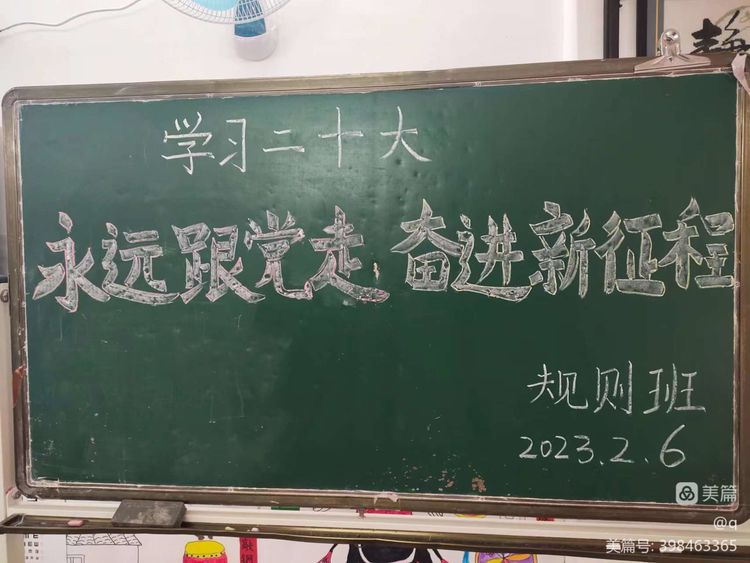 静
学习二十大
永远跟党走 奋进新征程
规则班
2023.2.6
美篇
@q
美篇号: 398463365